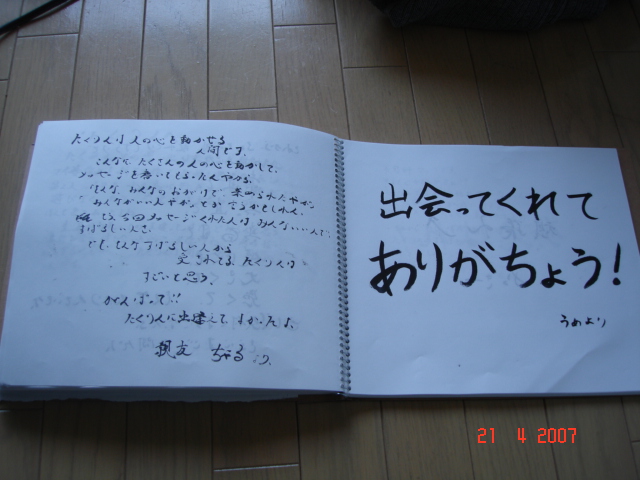 たくりんは人の心を動かせる
人間です。
こんなに、たくさんの人の心を動かして、
メッセージを書いてもらったんやから。
みんないい人
今回メッセージくれた人は みんないい人で、
すばらしい人
でも、そんなすばらしい人から
愛されてる、たくりんは
すごいと思う。
がんばって!!
たくりんに出逢えてよかったよ。
親友 ちゃる より
出会ってくれて
ありがちょう!
うめより
21 4 2007